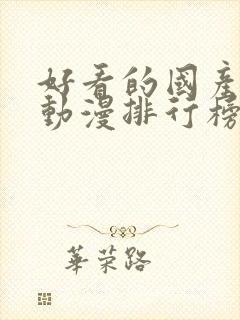 好看的國產
動漫排行榜
華荣路